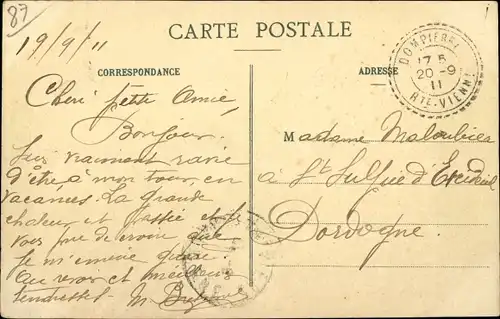 87
CARTE POSTALE
19/9/11
CORRESPONDANCE
ADRESSE
DOMPIERRE
17 5
20 -9
11
HTE-VIENNE
Cheri petite Amie
Bonjour.
Suis vraiment ravie
d'être à mon tour, en
vacances. La grande
chaleur est passée et je
vous prie de croire que
je m'ennuie guère.
Au revoir et meilleurs
tendresses. M.
Madame
à St Sulpice d'Excideuil
Dordogne.